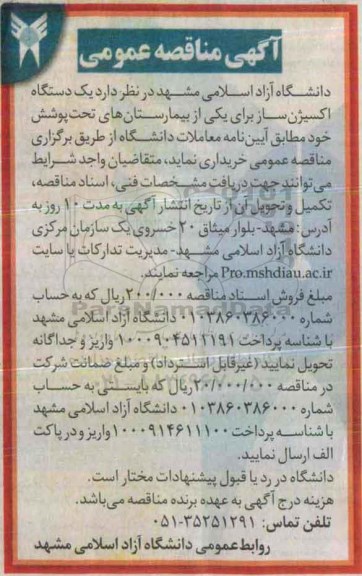 آگهی مناقصه عمومی
دانشگاه آزاد اسلامی مشهد در نظر دارد یک دستگاه
اکسیژن ساز برای یکی از بیمارستان‌های تحت پوشش
خود مطابق آیین نامه معاملات دانشگاه از طریق برگزاری
مناقصه عمومی خریداری نماید، متقاضیان واجد شرایط
می‌توانند جهت دریافت مشخصات فنی، اسناد مناقصه،
تکمیل و تحویل آن از تاریخ انتشار آگهی به مدت ۱۰ روز به
آدرس: مشهد- بلوار میثاق ۲۰ خسروی یک سازمان مرکزی
دانشگاه آزاد اسلامی مشهد- مدیریت تدارکات یا سایت
Pro.mshdiau.ac.ir مراجعه نمایند.
مبلغ فروش اسناد مناقصه ۲۰۰/۰۰۰ ریال که به حساب
شماره ۰۱۰۳۸۶۰۳۸۶۰۰۰ دانشگاه آزاد اسلامی مشهد
با شناسه پرداخت ۱۰۰۰۹۰۴۵۱۱۱۹۱ واریز و جداگانه
تحویل نمایید (غیرقابل استرداد) و مبلغ ضمانت شرکت
در مناقصه ۲۰/۰۰۰/۰۰۰ ریال که بایستی به حساب
شماره ۰۱۰۳۸۶۰۳۸۶۰۰۰ دانشگاه آزاد اسلامی مشهد
با شناسه پرداخت ۱۰۰۰۹۱۴۶۱۱۱۰۰ واریز و در پاکت
الف ارسال نمایید.
دانشگاه در رد یا قبول پیشنهادات مختار است.
هزینه درج آگهی به عهده برنده مناقصه می‌باشد.
تلفن تماس: ۳۵۲۵۱۲۹۱-۰۵۱
روابط عمومی دانشگاه آزاد اسلامی مشهد